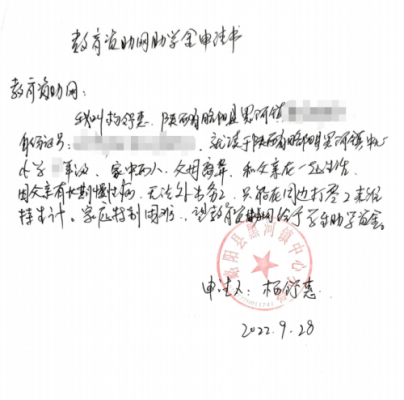 教育资助网助学金申请书
教育资助网：
我叫杨舒惠，陕西省略阳县黑河镇
身份证号：就读于陕西省略阳县黑河镇中心
小学 年级，家中两人，父母离异，和父亲在一起生活
因父亲有长期慢性病，无法外出务工，只能在周边打零工来维
持生计。家庭特别困难，望教育资助网给予学生助学资金。
略阳县黑河镇中心小学
申请人：杨舒惠
2022.9.28